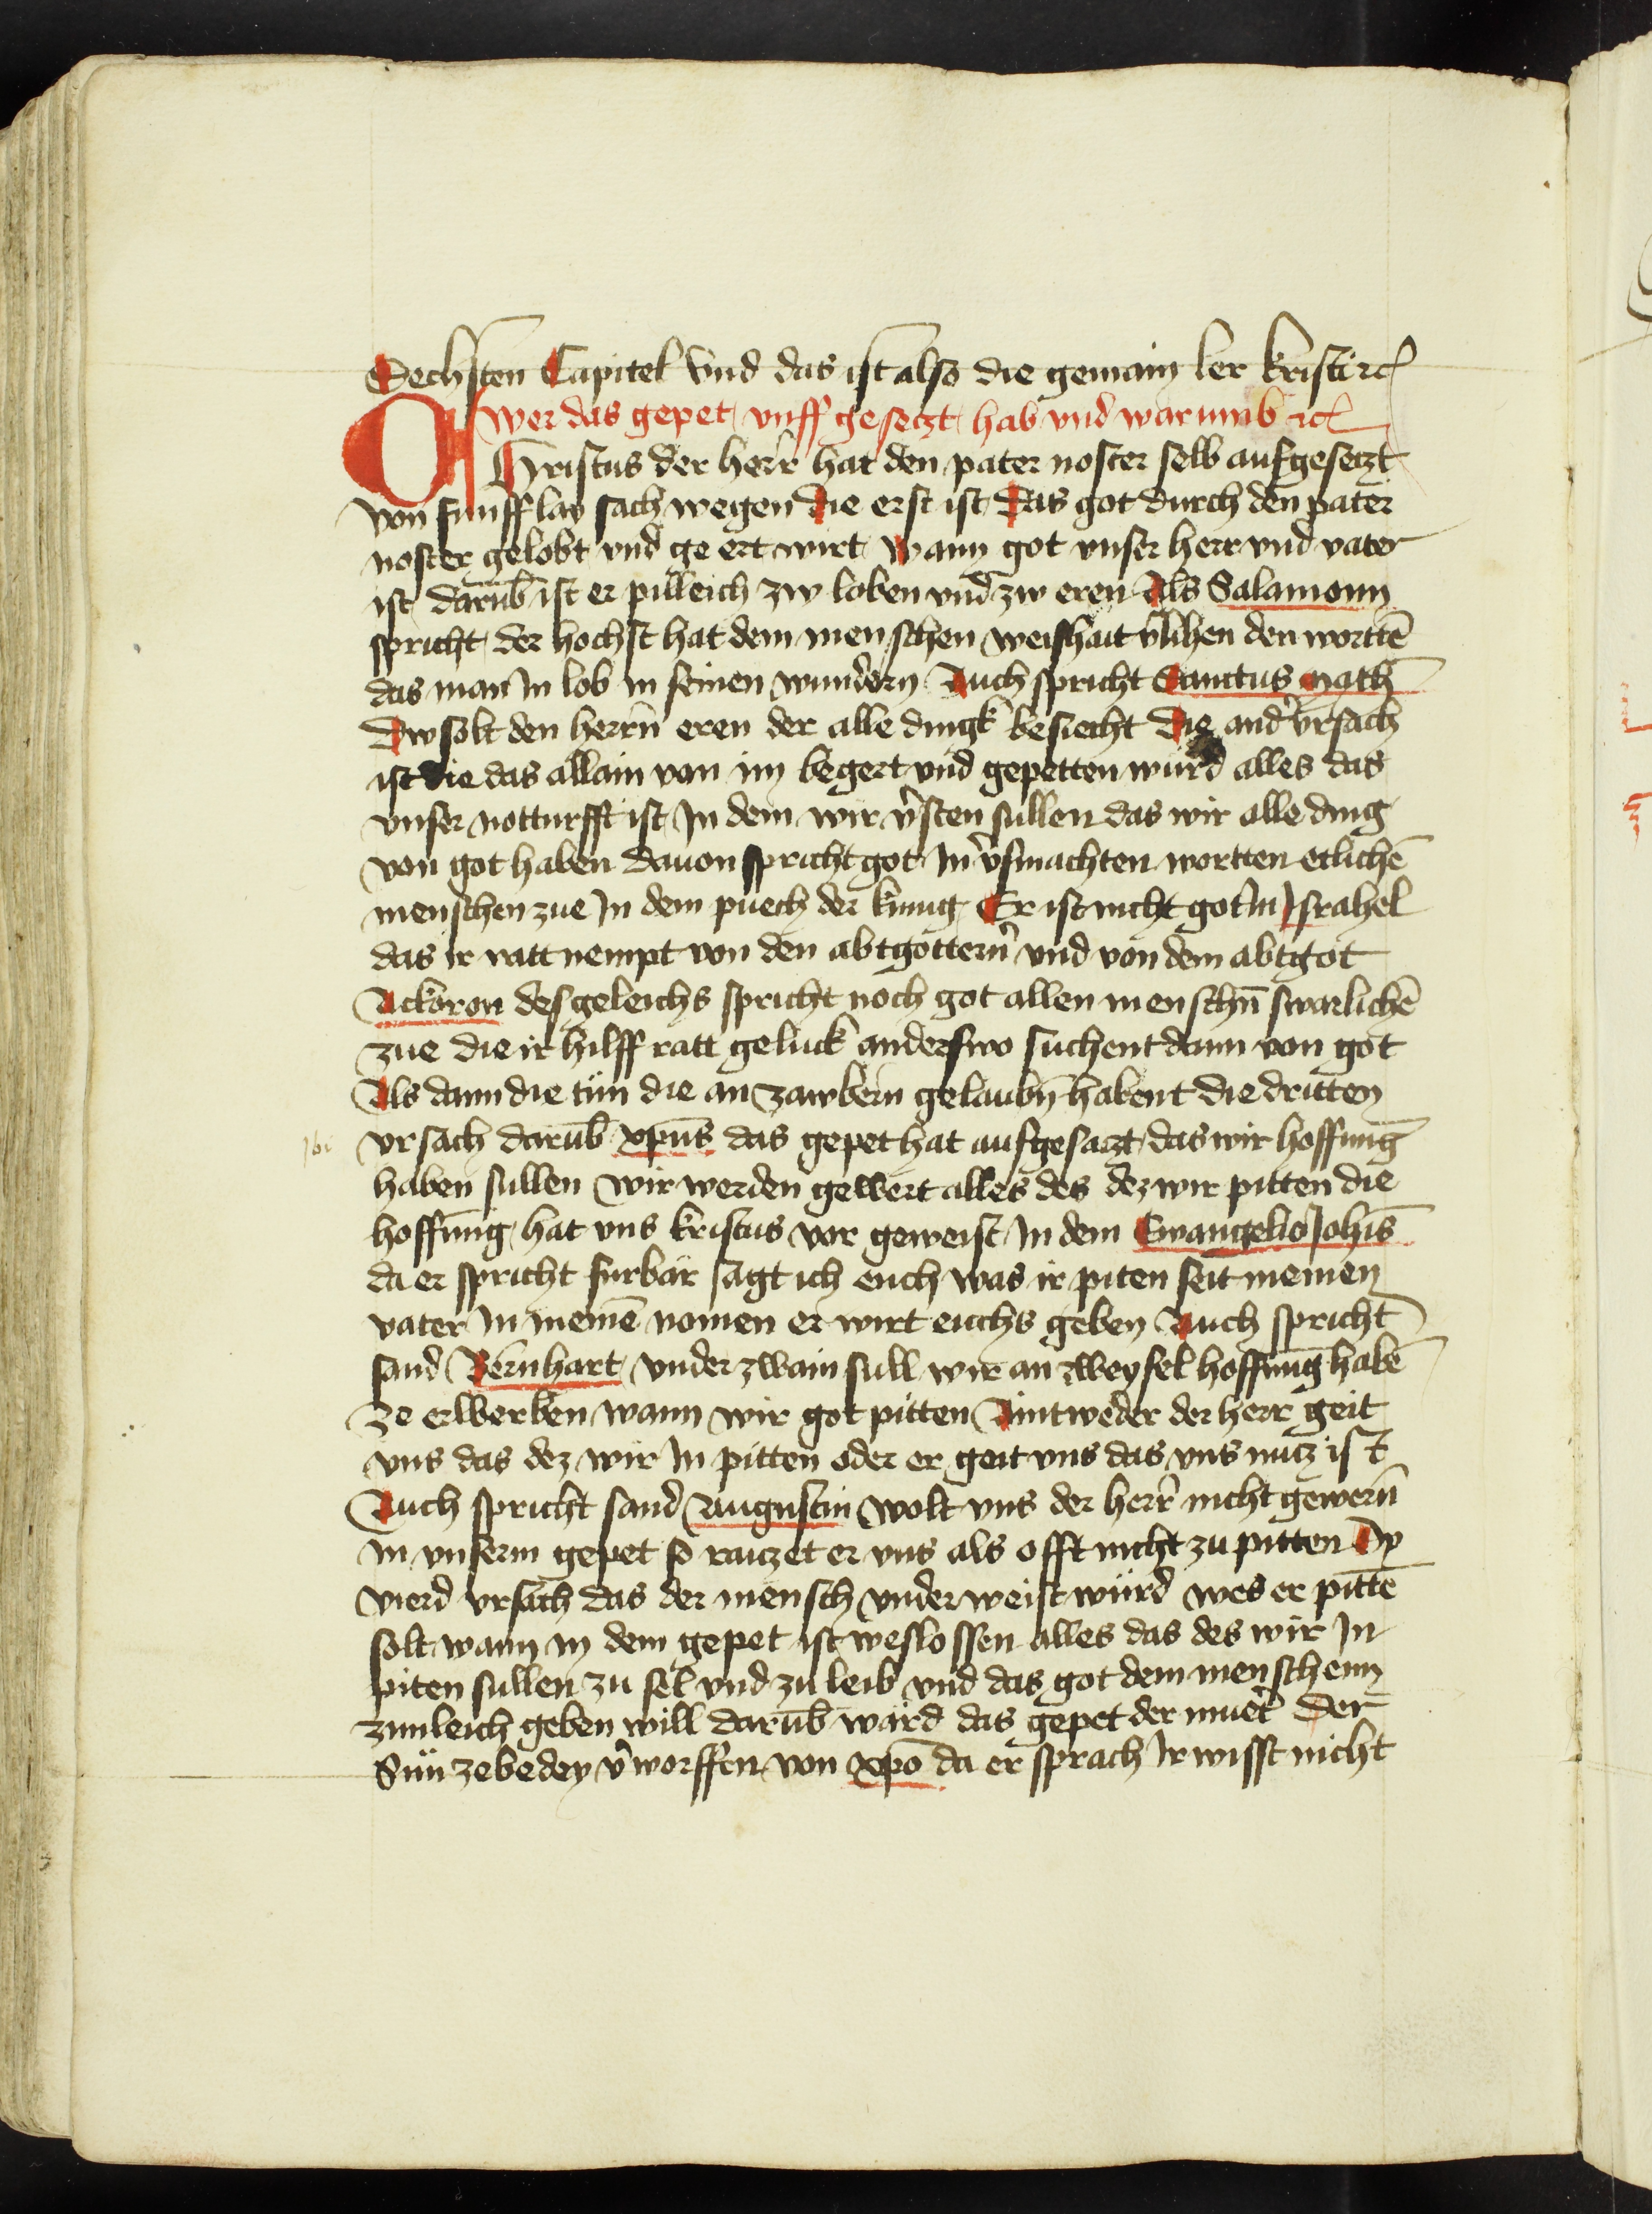 Sechsten Capitel Vnd das ist also die gemain ler kristi etc
wer das gepet vnff gesetzt hab vnd warumb etc
Christus der herr hat den pater noster selb aufgesetzt
von funfflay sach wegen Die erst ist Das got durch den pater
noster gelobt vnd ge ert wirt Wann got vnser herr vnd vater
ist darūb ist er pilleich zw loben vnd zw eren Als Salamonn
spricht der hochst hat dem menschen weishait v̄lihen den worttē
das man in lob in seinen wundern Auch spricht Sanctus math̄
Dw solt den herrn̄ eren der alle dingk besiecht Die and̄ vrsach
ist die das allain von im begert vnd gepetten wurd alles das
vnser notturfft ist In dem wir v̄sten sullen das wir alle ding
von got haben dauon spricht got In v̄smachten wortten etlichē
menschen zue In dem puech der kunig Er ist nicht got in Israhel
das ir ratt nempt von den abtgottern̄ vnd von dem abtgot
Ackoron desgeleichs spricht noch got allen menschn̄ swarlichē
zue die ir hilff ratt geluck anderswo suchent dann von got
Als dann die tun die an zawbern gelaubn̄ habent die dritten
vrsach darūb xp̄us das gepet hat aufgesatzt das wir hoffunḡ
haben sullen wir werden gewert alles des dez wir pitten die
hoffung hat vns kristus vor geweist In dem Ewangelio Joh̄is
da er spricht furbar sagt ich euch was ir piten seit meinen
vater In meinē nomen er wirt euchs geben Auch spricht
sand Bernhart vnder zwain sull wir an zweysel hoffung habē
ze erwerben wann wir got pitten Aintweder der herr geit
vns das dez wir In pitten oder er geit vns das vns nucz ist
Auch spricht sand Augustin wolt vns der herr nicht gewern̄
in vnserm gepet so raiczet er vns als offt nicht zu pitten Dy
vierd vrsach das der mensch vnderweist würd wes er pittē
solt wann in dem gepet ist weslossen alles das des wir In
piten sullen zu sel vnd zu leib vnd das got dem menschenn
zimleich geben will darūb ward das gepet der muet̄ der
Sün zebedey v̄worffen von xp̄o da er sprach Ir wisst nicht